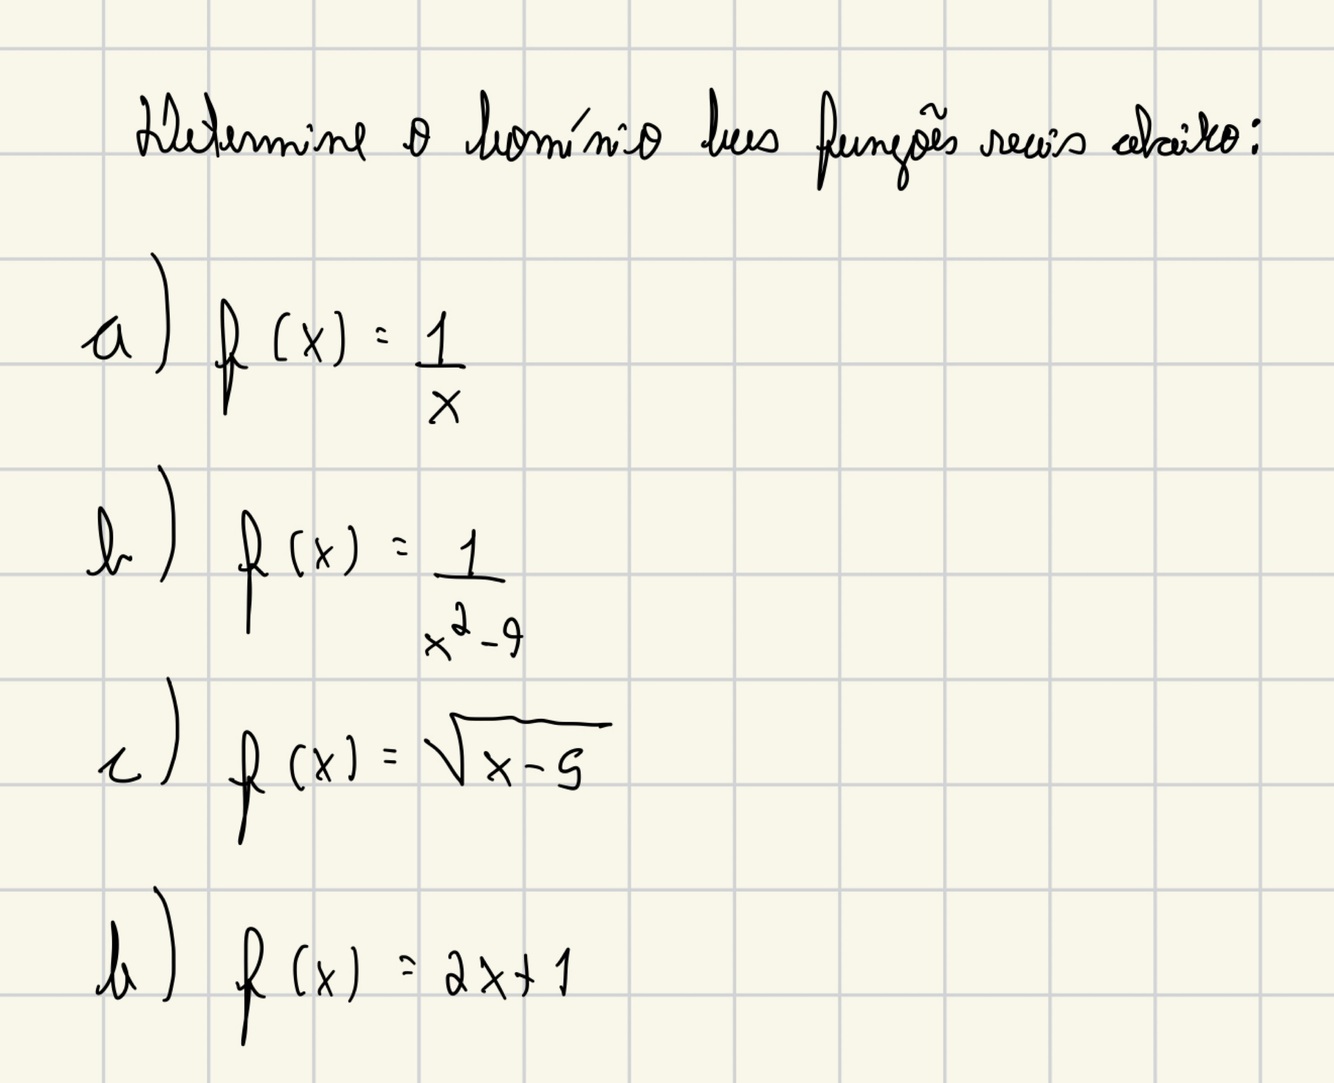 Determine o domínio das funções reais abaixo:
a) f(x) = 1/x
b) f(x) = 1/(x²-9)
c) f(x) = √(x-5)
d) f(x) = 2x+1